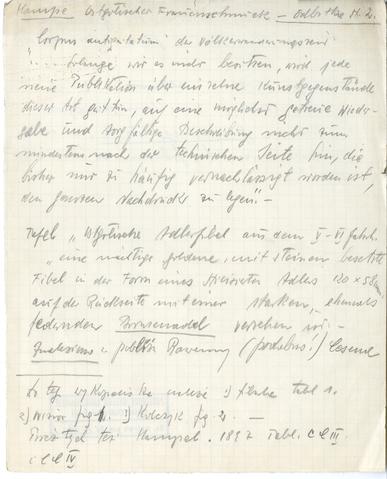 Hampe Ostgotischer Frauenschmuck – Odbitka H. 2.
"Corpus antiquitatum der Völkerwanderungszeit
"..... solange wir es nicht besitzen, wird jede
neue Publikation über einzelne Kunstgegenstände
dieser Art gut tun, auf eine möglichst getreue Wieder-
gabe und sorgfältige Beschreibung mehr zum
mindesten nach der technischen Seite hin, die
bisher nur zu häufig vernachlässigt worden ist,
den ganzen Nachdruck zu legen". –
Tafel "Ostgotische Adlerfibel aus dem V–VI Jahrh.
"eine mächtige goldene, mit Steinen besetzte
Fibel in der Form eines stilisierten Adlers 120 x 58 mm
auf der Rückseite mit einer starken, ehemals
federnden Bronzenadel versehen ist. –
w pobliżu Rawenny (podobno!) Cesena
Do tej wykopaliska należy 1) fibula tabl 1.
2) fig 1. 3) Kolczyk fig 2. —
tej Hampel. 1897 Tabl. CCIII